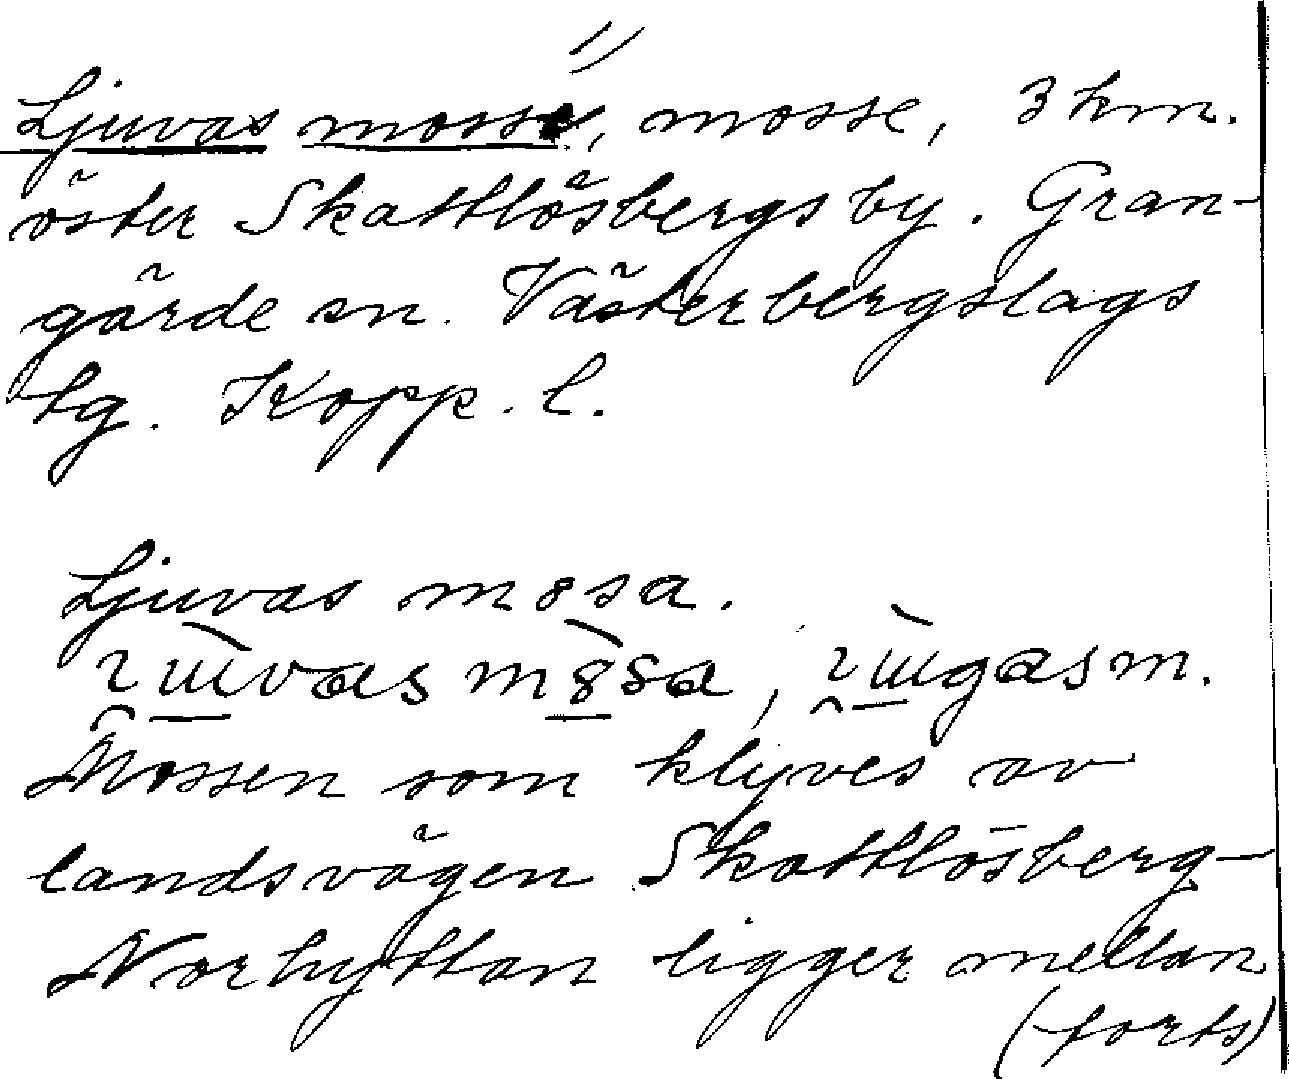 1)
Ljuvas mosse, mosse, 3 km.
öster Skattlösbergs by. Gran-
gärde sn. Västerbergslags
tg. Kopp. l.
Ljuvas m8sa.
Mossen som klyves av
landsvägen Skattlösberg-
Norhyttan ligger mellan
(forts)